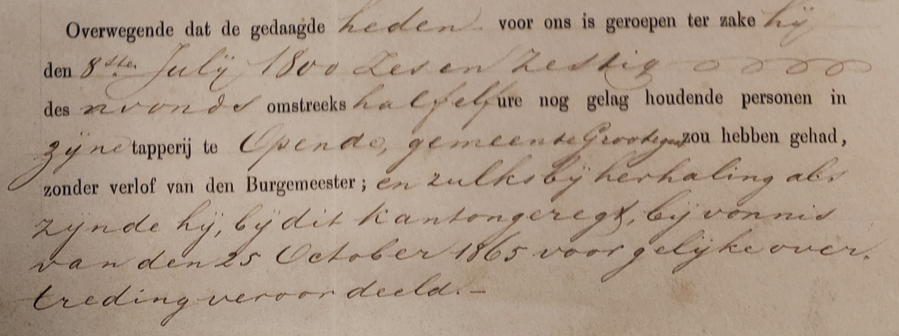 Overwegende dat de gedaagde heden voor ons is geroepen ter zake hij
den 8ste July 1800 Zes en Zestig
des avonds omstreeks half elf ure nog gelag houdende personen in
zijne tapperij te Opende, gemeente Grootegast zou hebben gehad,
zonder verlof van den Burgemeester; en zulks bij herhaling als
zijnde hij, bij dit kantongeregt, bij vonnis
van den 25 October 1865 voor gelijke over-
treding veroordeeld.—